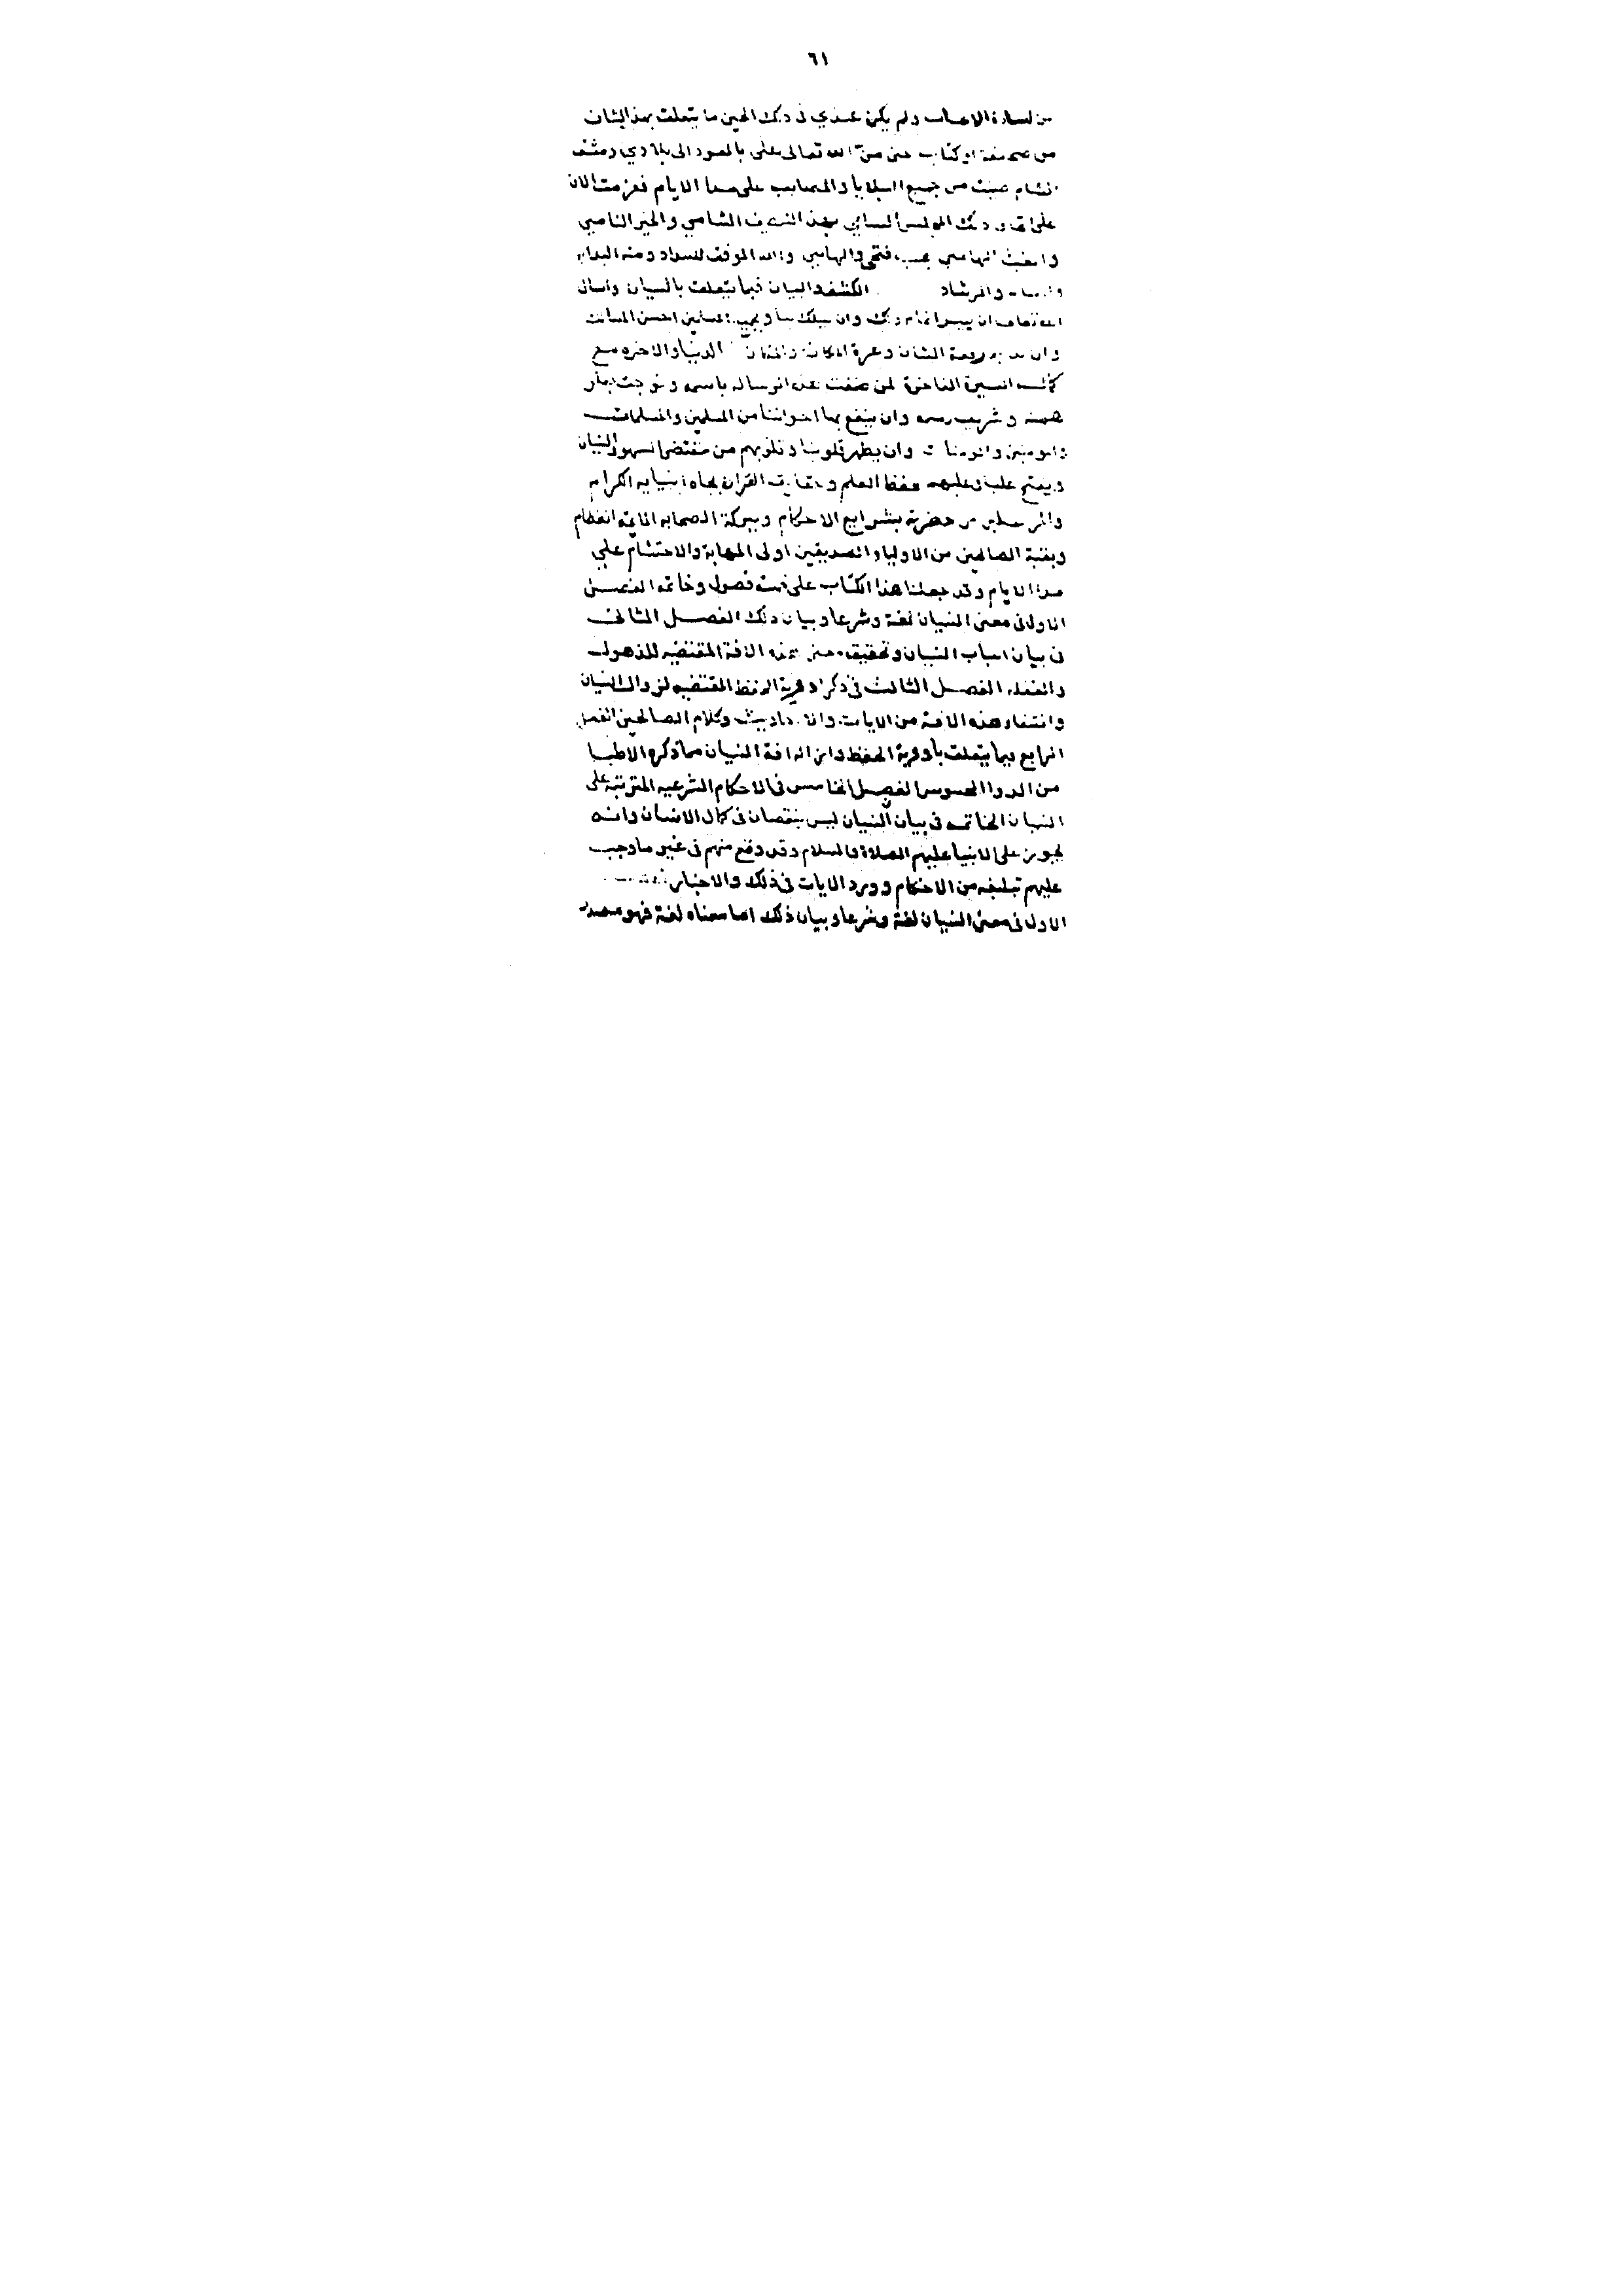 ٦١
من السادة الاحباب ولم يكن عندي في ذلك الحين ما يتعلق بهذا الشان
من صحيفة او كتاب حتى منّ الله تعالى علي بالعود الى بلادي دمشق
الشام من جميع البلايا والمصايب على مدا الايام فعزمت الان
على ذلك بهذا الشريف الشامي والخير النامي
والغيث الهامي بحسب فتحي والهامي والله الموفق للسداد ومنه البداية
والرشاد الكشف والبيان فيما يتعلق بالنسيان واسال
الله تعالى ان ييسر اتمام ذلك وان يسلك بنا وبجميع المسلمين احسن المسالك
وان رفعة الشان وعزة المكانة والمكان الدنيا والاخره مع
كمال السيرة الفاخرة لمن صنفت هذه الرساله باسمه
همته وشريف رسمه وان ينفع بها اخواننا من المسلمين والمسلمات
والمومنين والمومنات وان يطهر قلوبنا وقلوبهم من مقتضى السهو والنسيان
ويفتح علينا وعليهم بحفظ العلم وحقايق القران بجاه انبيايه الكرام
والمرسلين من حضرته بشرايع الاحكام وببركة الصحابه الائمة العظام
وبقية الصالحين من الاولياء والصديقين اولى المهابة والاحتشام علي
مدا الايام وقد جعلنا هذا الكتاب على خمسة فصول وخاتمه الفصل
الاول في معنى النسيان لغة وشرعا وبيان ذلك الفصل الثاني
في بيان اسباب النسيان وتحقيق معنى هذه الافة المقتضيه للذهول
والغفله الفصل الثالث في ذكر ادوية الحفظ المقتضيه لزوال النسيان
وانتفاء هذه الافة من الايات والاحاديث وكلام الصالحين الفصل
الرابع فيما يتعلق بأدوية الحفظ وازالة افة النسيان مما ذكره الاطبا
من الدوا المحسوس الفصل الخامس في الاحكام الشرعيه المترتبة على
النسيان الخاتمه في بيان ان النسيان ليس بنقصان في كمال الانسان وانه
يجوز على الانبيا عليهم الصلاة والسلام وقد وقع منهم في غير ما وجب
عليهم تبليغه من الاحكام وورد الايات في ذلك والاخبار
الاول في معنى النسيان لغة وشرعا وبيان ذلك اما معناه لغة فهو مصدر